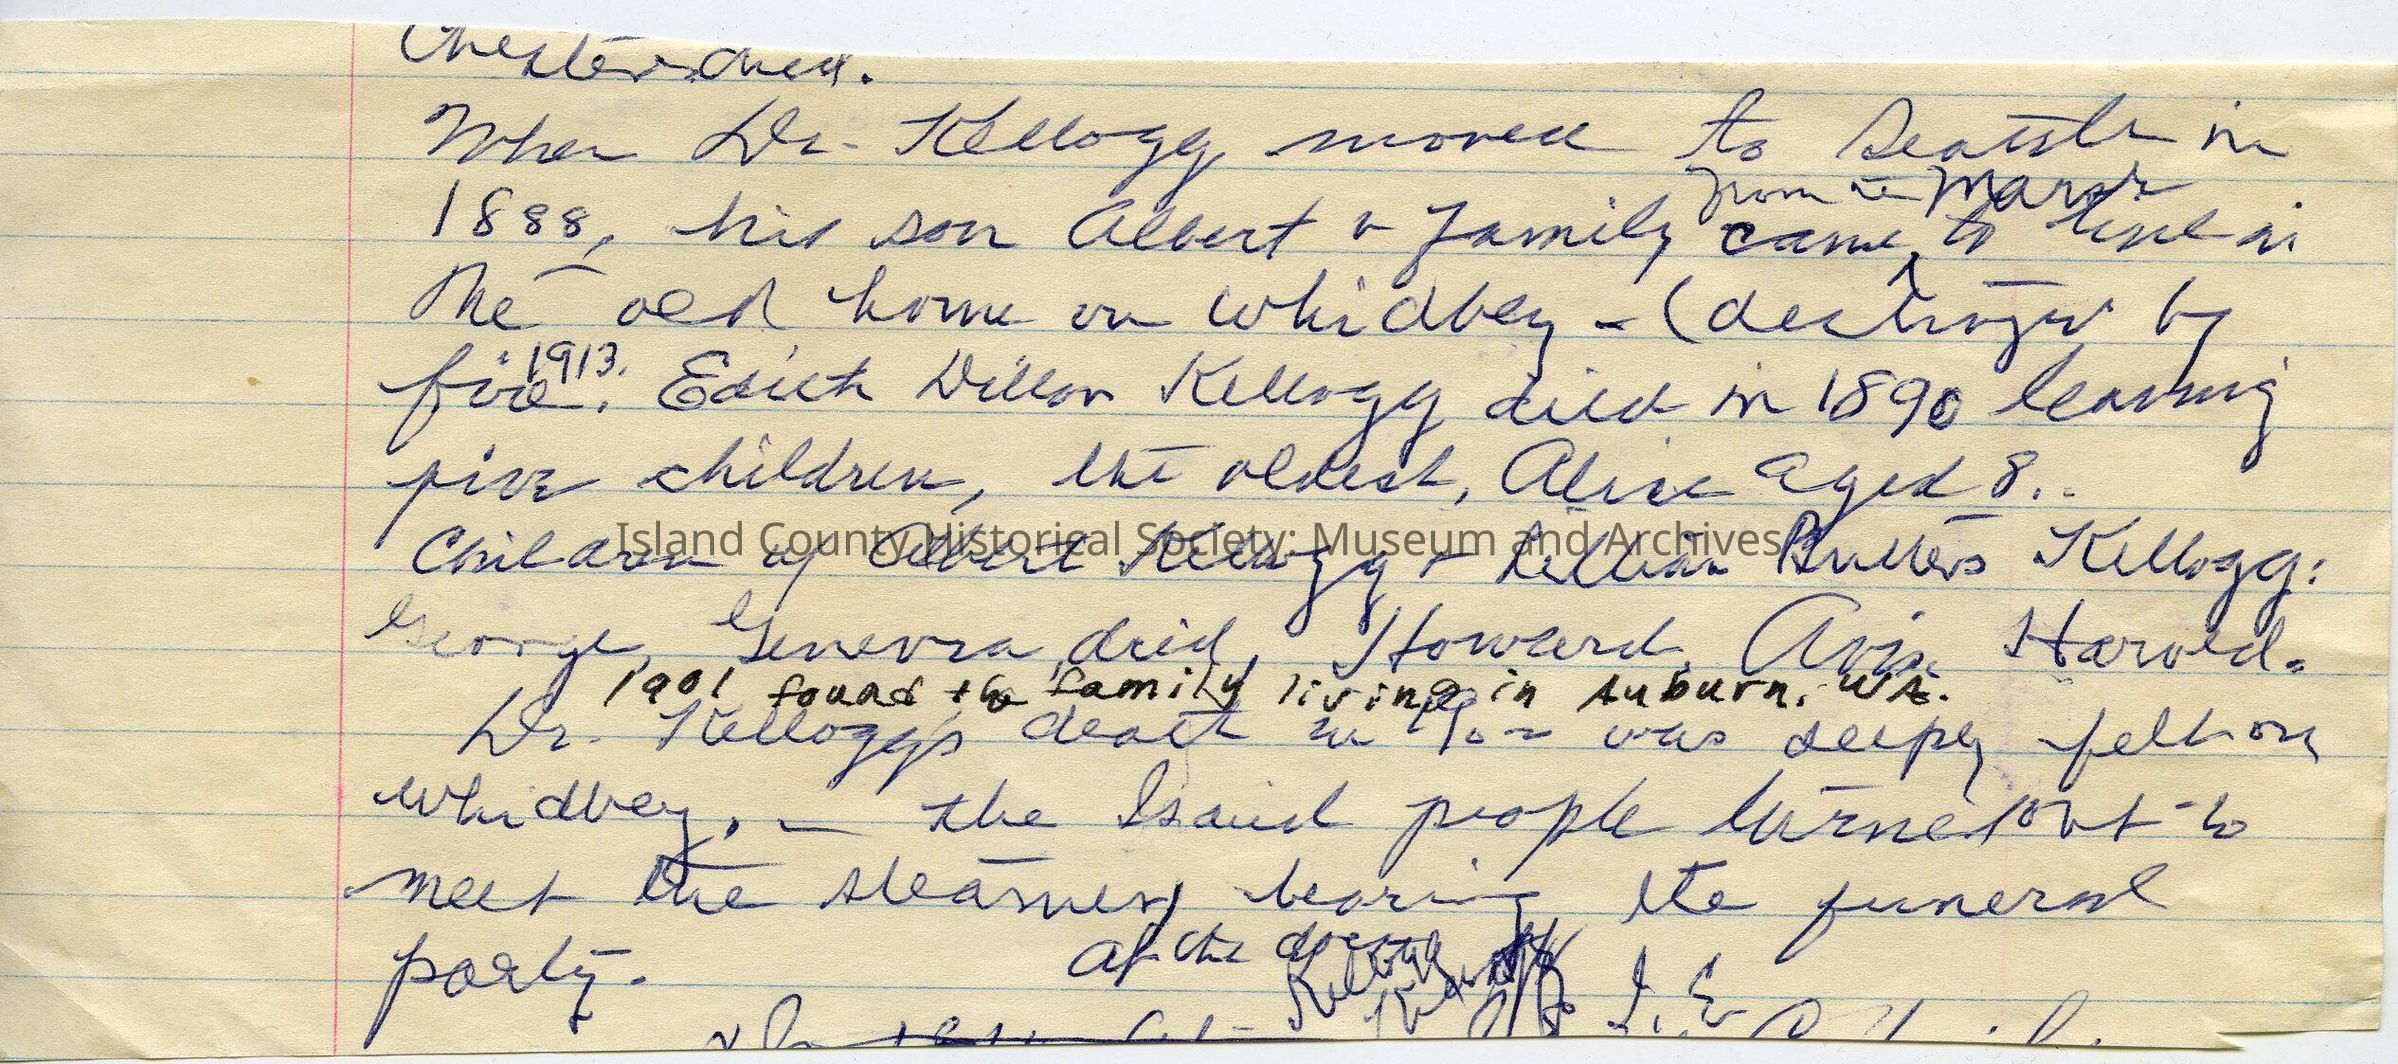 Chester died.
When Dr. Kellogg moved to Seattle in
from the Marsh
1888, his son Albert & family came to live in
the old home on Whidbey - (destroyed by
fire 1913. Edith Dillon Kellogg died in 1890 leaving
five children, the oldest, Alice aged 8..
Island County Historical Society: Museum and Archives
Children of Albert Kellogg & Lillian Butters Kellogg:
George, Genevra died, Howard, Avis, Harold.
1901 found the family living in Auburn, WA.
Dr. Kellogg's death in was deeply felt on
Whidbey, - the Island people turned out to
meet the steamer bearing the funeral
party.
at the